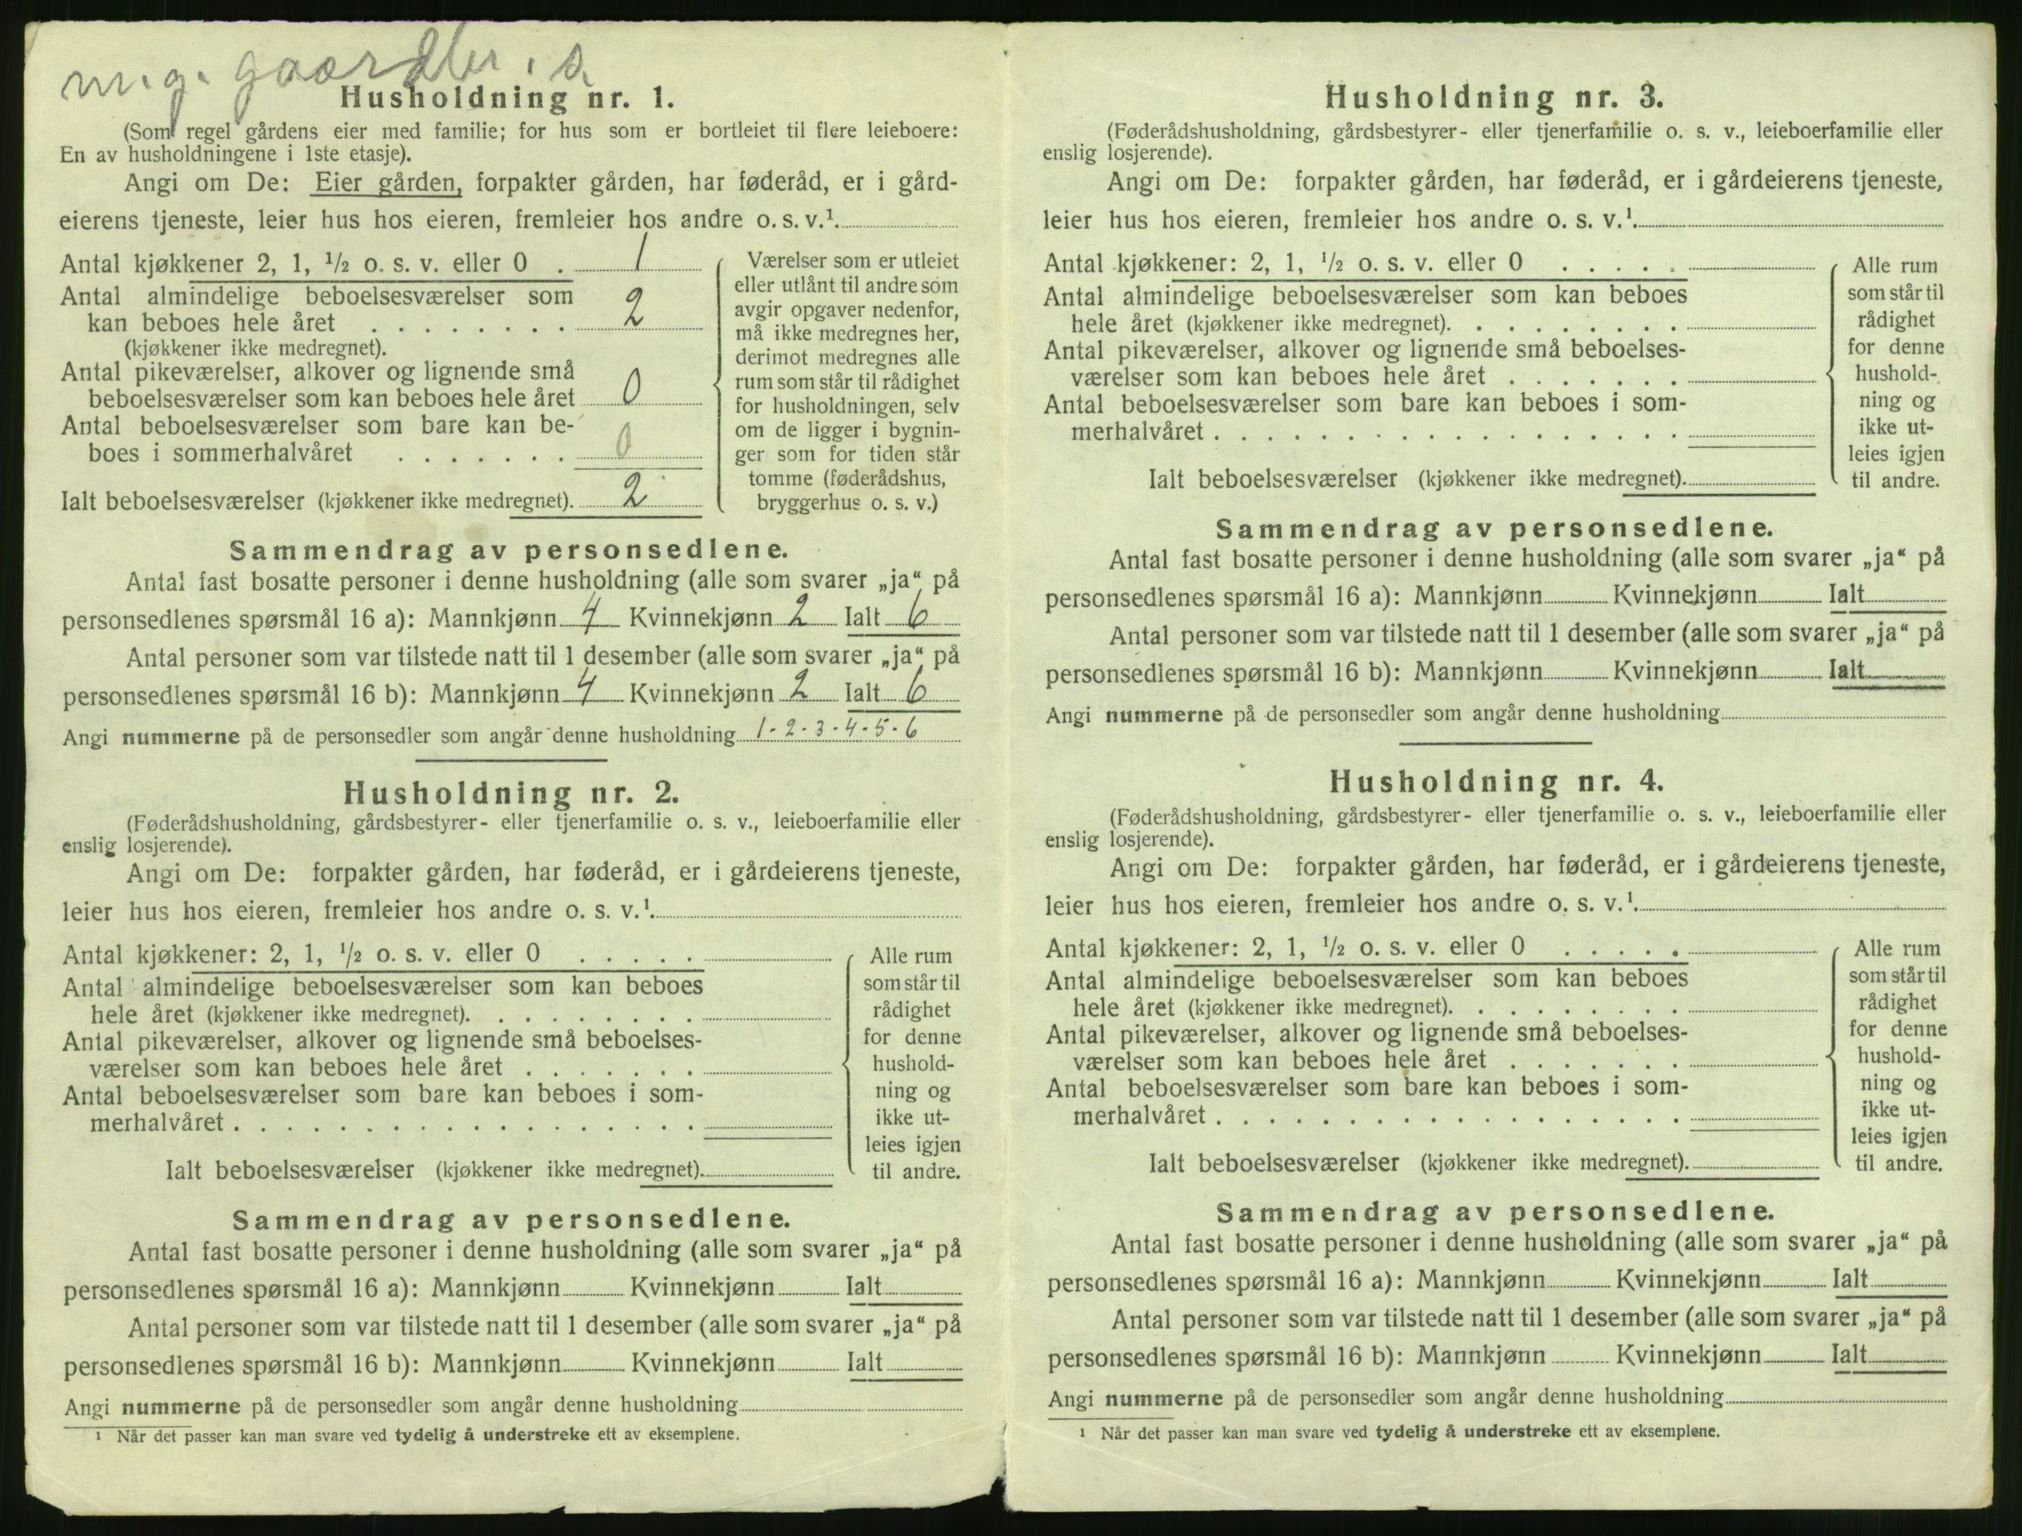 Husholdning nr. 1.
(Som regel gårdens eier med familie; for hus som er bortleiet til flere leieboere:
En av husholdningene i 1ste etasje).
Angi om De: Eier gården, forpakter gården, har føderåd, er i gård-
eierens tjeneste, leier hus hos eieren, fremleier hos andre o. s. v.¹.
Antal kjøkkener 2, 1, ½ o. s. v. eller 0 . 1
Antal almindelige beboelsesværelser som
kan beboes hele året . . . . . . . . 2
(kjøkkener ikke medregnet).
Antal pikeværelser, alkover og lignende små
beboelsesværelser som kan beboes hele året 0
Antal beboelsesværelser som bare kan be-
boes i sommerhalvåret . . . . . . . 0
Ialt beboelsesværelser (kjøkkener ikke medregnet). 2
Værelser som er utleiet
eller utlånt til andre som
avgir opgaver nedenfor,
må ikke medregnes her,
derimot medregnes alle
rum som står til rådighet
for husholdningen, selv
om de ligger i bygnin-
ger som for tiden står
tomme (føderådshus,
bryggerhus o. s. v.)
Sammendrag av personsedlene.
Antal fast bosatte personer i denne husholdning (alle som svarer „ja“ på
personsedlenes spørsmål 16 a): Mannkjønn 4 Kvinnekjønn 2 Ialt 6
Antal personer som var tilstede natt til 1 desember (alle som svarer „ja“ på
personsedlenes spørsmål 16 b): Mannkjønn 4 Kvinnekjønn 2 Ialt 6
Angi nummerne på de personsedler som angår denne husholdning 1-2-3-4-5-6
Husholdning nr. 2.
(Føderådshusholdning, gårdsbestyrer- eller tjenerfamilie o. s. v., leieboerfamilie eller
enslig losjerende).
Angi om De: forpakter gården, har føderåd, er i gårdeierens tjeneste,
leier hus hos eieren, fremleier hos andre o. s. v.¹.
Antal kjøkkener: 2, 1, ½ o. s. v. eller 0 . . . . .
Antal almindelige beboelsesværelser som kan beboes
hele året (kjøkkener ikke medregnet). . . . . . . . .
Antal pikeværelser, alkover og lignende små beboelses-
værelser som kan beboes hele året . . . . . . .
Antal beboelsesværelser som bare kan beboes i som-
merhalvåret . . . . . . . . . . . . . . . . . .
Ialt beboelsesværelser (kjøkkener ikke medregnet).
Alle rum
som står til
rådighet
for denne
hushold-
ning og
ikke ut-
leies igjen
til andre.
Sammendrag av personsedlene.
Antal fast bosatte personer i denne husholdning (alle som svarer „ja“ på
personsedlenes spørsmål 16 a): Mannkjønn Kvinnekjønn Ialt
Antal personer som var tilstede natt til 1 desember (alle som svarer „ja“ på
personsedlenes spørsmål 16 b): Mannkjønn Kvinnekjønn Ialt
Angi nummerne på de personsedler som angår denne husholdning
¹ Når det passer kan man svare ved tydelig å understreke ett av eksemplene.
Husholdning nr. 3.
(Føderådshusholdning, gårdsbestyrer- eller tjenerfamilie o. s. v., leieboerfamilie eller
enslig losjerende).
Angi om De: forpakter gården, har føderåd, er i gårdeierens tjeneste,
leier hus hos eieren, fremleier hos andre o. s. v.¹.
Antal kjøkkener: 2, 1, ½ o. s. v. eller 0 . . . . .
Antal almindelige beboelsesværelser som kan beboes
hele året (kjøkkener ikke medregnet). . . . . . . . .
Antal pikeværelser, alkover og lignende små beboelses-
værelser som kan beboes hele året . . . . . . .
Antal beboelsesværelser som bare kan beboes i som-
merhalvåret . . . . . . . . . . . . . . . . . .
Ialt beboelsesværelser (kjøkkener ikke medregnet).
Alle rum
som står til
rådighet
for denne
hushold-
ning og
ikke ut-
leies igjen
til andre.
Sammendrag av personsedlene.
Antal fast bosatte personer i denne husholdning (alle som svarer „ja“ på
personsedlenes spørsmål 16 a): Mannkjønn Kvinnekjønn Ialt
Antal personer som var tilstede natt til 1 desember (alle som svarer „ja“ på
personsedlenes spørsmål 16 b): Mannkjønn Kvinnekjønn Ialt
Angi nummerne på de personsedler som angår denne husholdning
Husholdning nr. 4.
(Føderådshusholdning, gårdsbestyrer- eller tjenerfamilie o. s. v., leieboerfamilie eller
enslig losjerende).
Angi om De: forpakter gården, har føderåd, er i gårdeierens tjeneste,
leier hus hos eieren, fremleier hos andre o. s. v.¹.
Antal kjøkkener: 2, 1, ½ o. s. v. eller 0 . . . . .
Antal almindelige beboelsesværelser som kan beboes
hele året (kjøkkener ikke medregnet). . . . . . . . .
Antal pikeværelser, alkover og lignende små beboelses-
værelser som kan beboes hele året . . . . . . .
Antal beboelsesværelser som bare kan beboes i som-
merhalvåret . . . . . . . . . . . . . . . . . .
Ialt beboelsesværelser (kjøkkener ikke medregnet).
Alle rum
som står til
rådighet
for denne
hushold-
ning og
ikke ut-
leies igjen
til andre.
Sammendrag av personsedlene.
Antal fast bosatte personer i denne husholdning (alle som svarer „ja“ på
personsedlenes spørsmål 16 a): Mannkjønn Kvinnekjønn Ialt
Antal personer som var tilstede natt til 1 desember (alle som svarer „ja“ på
personsedlenes spørsmål 16 b): Mannkjønn Kvinnekjønn Ialt
Angi nummerne på de personsedler som angår denne husholdning
¹ Når det passer kan man svare ved tydelig å understreke ett av eksemplene.